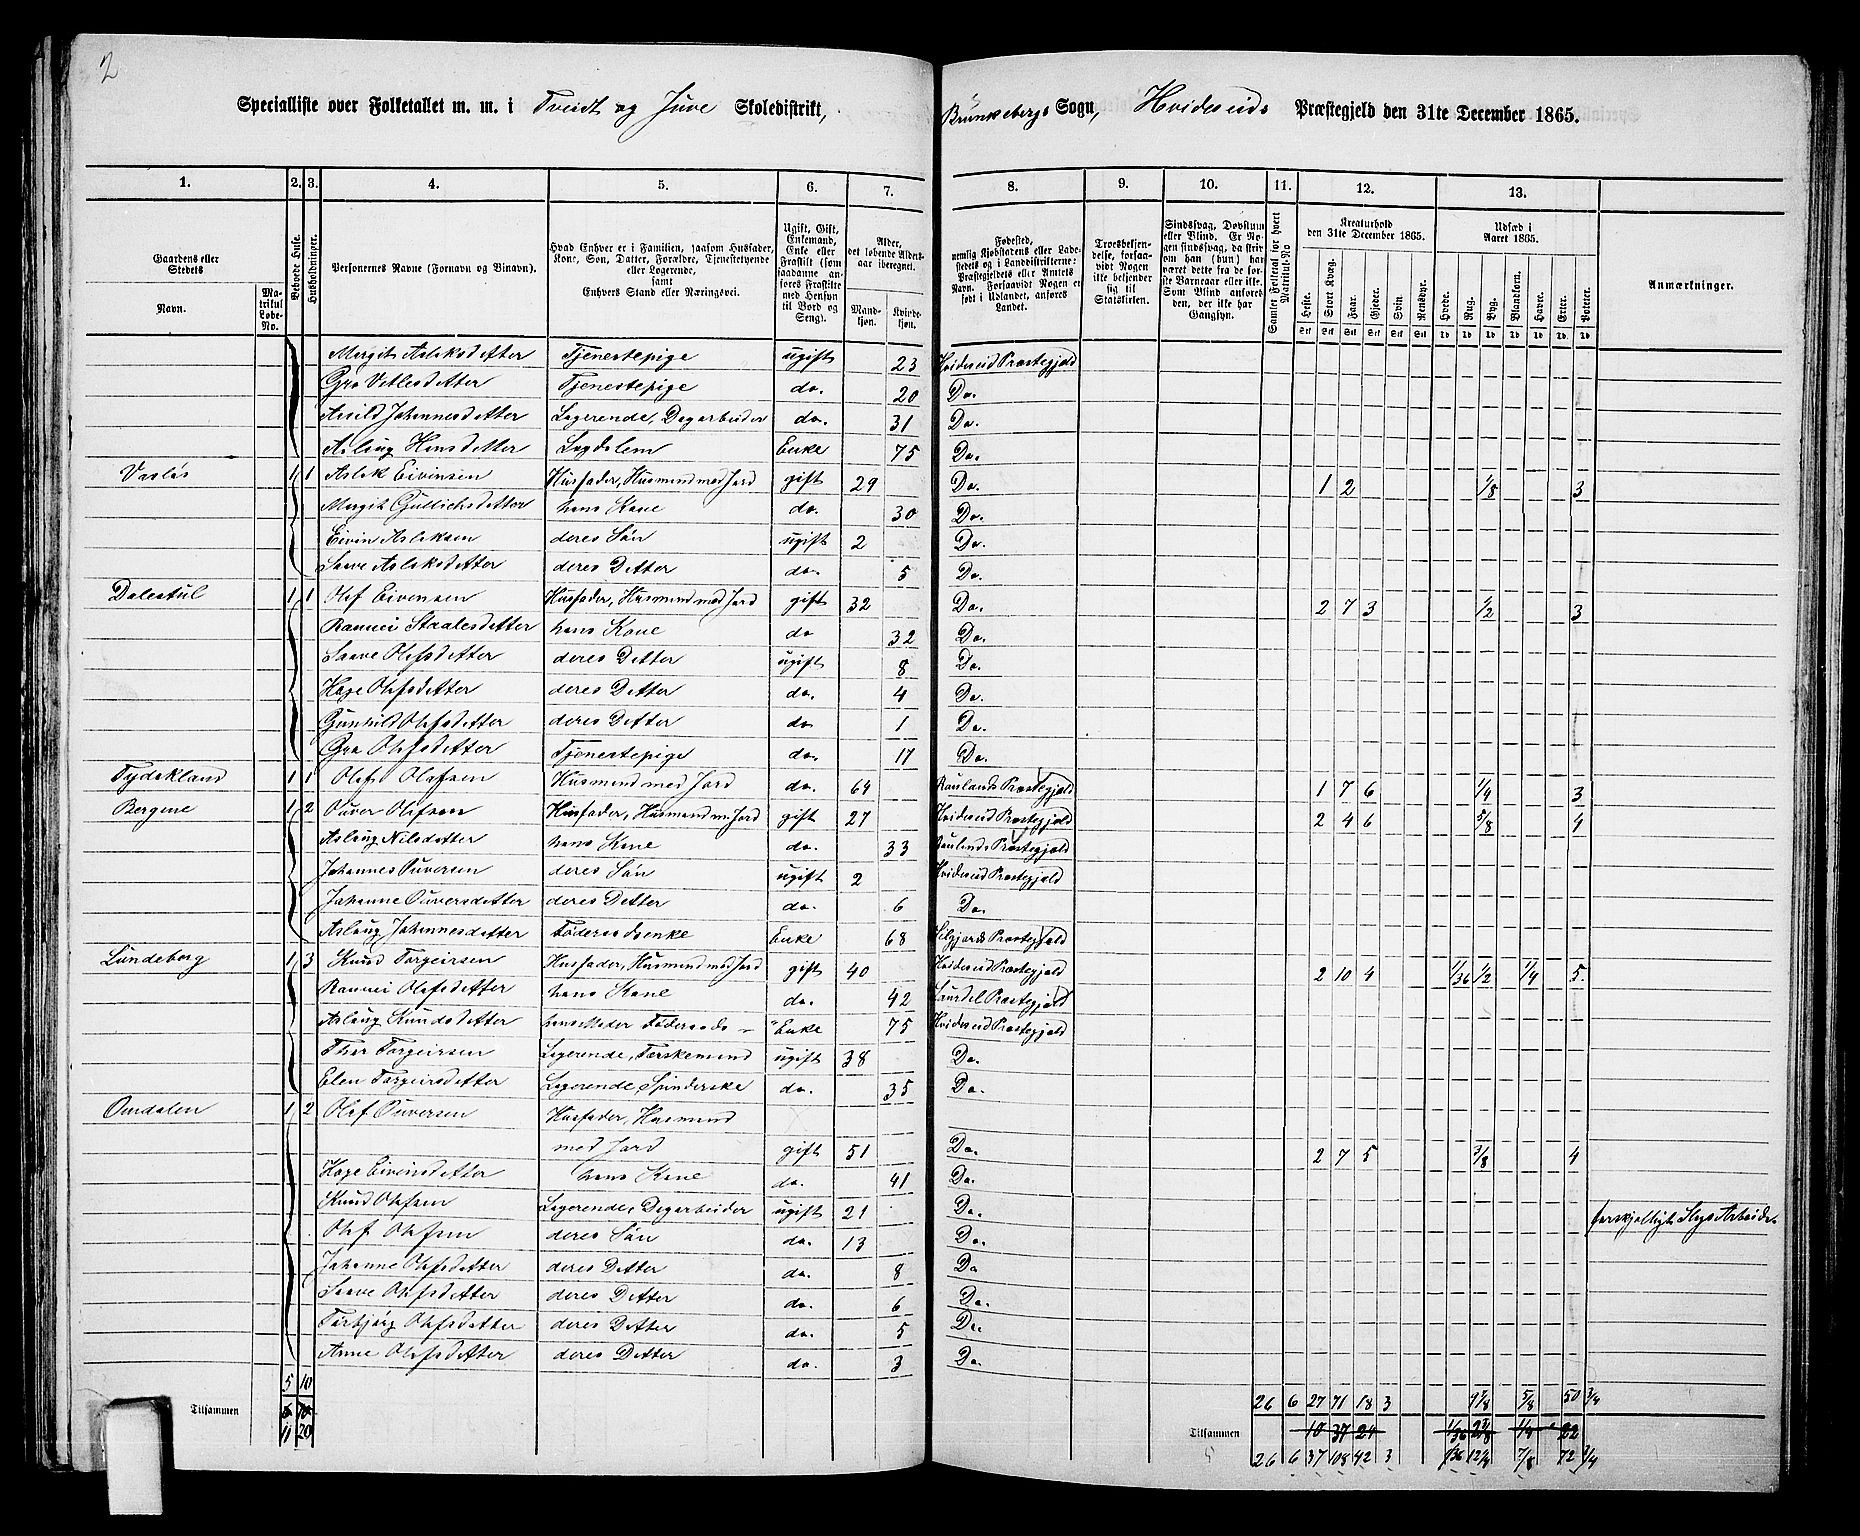 2
Specialliste over Folketallet m. m. i Tveidt og Juve Skoledistrikt, Brunkebergs Sogn, Hvideseids Præstegjeld den 31te December 1865.
1. 2. 3. 4. 5. 6. 7. 8. 9. 10. 11. 12. 13.
Gaardens eller Stedets
Navn.
Matrikul Løbe-No.
Beboede Huse.
Husholdninger.
Personernes Navne (Fornavn og Binavn).
Hvad Enhver er i Familien, saasom Husfader, Kone, Søn, Datter, Forældre, Tjenestetyende eller Logerende, samt Enhvers Stand eller Næringsvei.
Ugift, Gift, Enkemand, Enke eller Fraskilt (som saadanne anføres Fraskilte med Hensyn til Bord og Seng).
Alder, det løbende Aldersaar iberegnet.
Mandkjøn. Kvindekjøn.
Fødested, nemlig Kjøbstadens eller Ladestedets og i Landdistrikterne: Præstegjeldets eller Amtets Navn. Forsaavidt Nogen er født i Udlandet, anføres Landet.
Troesbekjendelse, forsaavidt Nogen ikke bekjender sig til Statskirken.
Sindssvag, Døvstum eller Blind. Er Nogen sindssvag, da skrives om han (hun) har været dette fra de første Barneaar eller ikke. Som Blind anføres den, der ikke har Gangsyn.
Samlet Folketal for hvert Matrikul-No
Kreaturhold den 31te December 1865.
Heste. Stort Kvæg. Faar. Gjeder. Svin. Rensdyr.
Udsæd i Aaret 1865.
Hvede. Rug. Byg. Blandkorn. Havre. Erter. Poteter.
Anmærkninger.
Margit Aslaksdatter Tjenestepige ugift 23 Hvideseid Præstegjeld
Gro Vetlesdatter Tjenestepige do 20 Do.
Assild Johannesdatter Logerende, Dagarbeider do. 31 Do.
Aslaug Hansdatter Lægdslem Enke 75 Do.
Vaslos 1 1 Aslak Eivinsen Husfader, Husmand med Jord gift 29 Do. 1 2 1/8 3
Margit Gullichsdatter hans Kone do. 30 Do.
Eivin Aslaksen deres Søn ugift 2 Do.
Saave Aslaksdatter deres Datter do. 5 Do.
Dalestul 1 1 Olaf Eivensen Husfader, Husmand med Jord gift 32 Do. 2 7 3 1/2 3
Rannei Staalesdatter hans Kone do 32 Do.
Saave Olafsdatter deres Datter ugift 8 Do.
Hæge Olafsdatter deres Datter do. 4 Do.
Gunhild Olafsdatter deres Datter do 1 Do.
Gro Olafsdatter Tjenestepige do. 17 Do.
Tydskland 1 1 Olaf Olafsen Husmand med Jord do. 64 Raulands Præstegjeld 1 7 6 1/4 3
Bergene 1 2 Ouver Olafsen Husfader, Husmand m. Jord gift 27 Hvideseid Præstegjeld 2 4 6 5/8 4
Aslaug Nilsdatter hans Kone do. 33 Raulands Præstegjeld
Johannes Ouversen deres Søn ugift 2 Hvideseid Præstegjeld
Johanne Ouversdatter deres Datter do. 6 Do.
Aslaug Johannesdatter Føderaadsenke Enke 68 Silgjords Præstegjeld
Lundeberg 1 3 Knud Torgeirsen Husfader, Husmand med Jord gift 40 Hvideseid Præstegjeld 2 10 4 1/36 1/2 1/4 5.
Rannei Olafsdatter hans Kone do. 42 Laurdal Præstegjeld
Aslaug Knudsdatter hans Moder Føderaads- Enke 75 Hvideseid Præstegjeld
Thor Torgeirsen Logerende, Tærskemand ugift 38 Do.
Elen Torgeirsdatter Logerende, Spinderske do. 35 Do.
Omdalen 1 2 Olaf Ouversen Husfader, Husmand
med Jord gift 51 Do. 2 7 5 3/8 4
Hæge Eivinsdatter hans Kone do. 41 Do.
Knud Olafsen Logerende, Dagarbeider ugift 21 Do. forskjelligt Slags Arbeide.
Olaf Olafsen deres Søn do. 13 Do.
Johanne Olafsdatter deres Datter do. 8 Do
Saave Olafsdatter deres Datter do. 6 Do.
Torbjørg Olafsdatter deres Datter do. 5 Do
Anne Olafsdatter deres Datter do. 3 Do
5 10 26 6 27 71 18 3 9 3/8 5/8 50 3/4
Tilsammen 6 10 Tilsammen 10 37 24 1/36 2 3/8 1/4 22
11 20 26 6 37 108 42 3 1/36 12 1/4 7/8 72 3/4